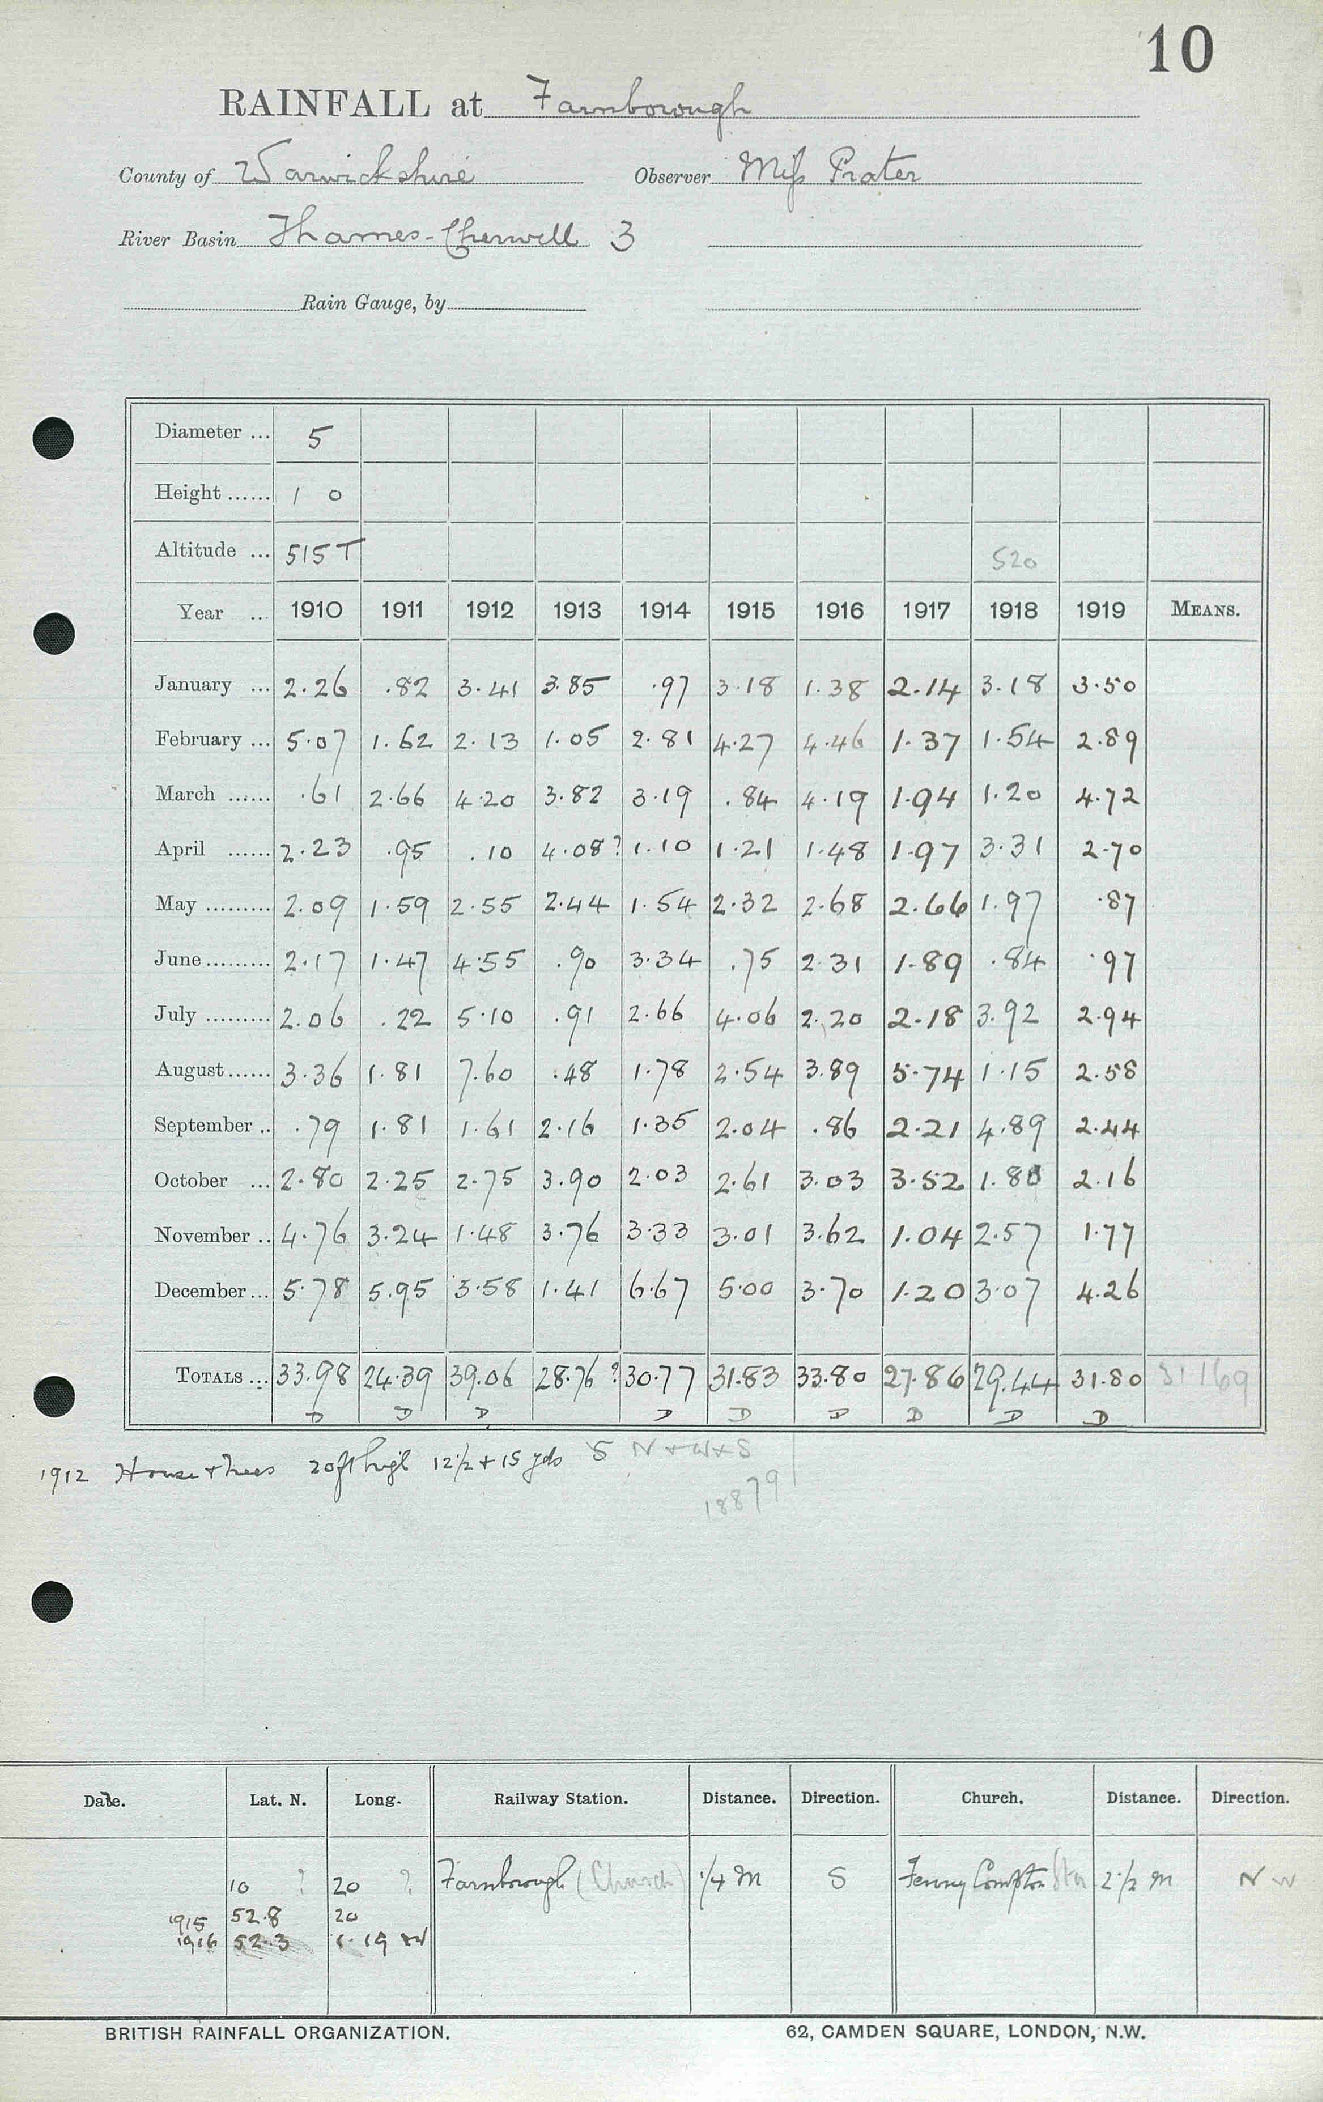 10
RAINFALL at Farnborough
County of Warwickshire Observer Miss Prater
River Basin Thames-Cherwell 3
Rain Gauge, by
Diameter ... 5
Height ...... 1 0
Altitude ... 515 T 520
Year ... 1910 1911 1912 1913 1914 1915 1916 1917 1918 1919 MEANS.
January ... 2.26 .82 3.41 3.85 .97 3.18 1.38 2.14 3.18 3.50
February ... 5.07 1.62 2.13 1.05 2.81 4.27 4.46 1.37 1.54 2.89
March ...... .61 2.66 4.20 3.82 3.19 .84 4.19 1.94 1.20 4.72
April ...... 2.23 .95 .10 4.08? 1.10 1.21 1.48 1.97 3.31 2.70
May ......... 2.09 1.59 2.55 2.44 1.54 2.32 2.68 2.66 1.97 .87
June ......... 2.17 1.47 4.55 .90 3.34 .75 2.31 1.89 .84 .97
July ......... 2.06 .22 5.10 .91 2.66 4.06 2.20 2.18 3.92 2.94
August ...... 3.36 1.81 7.60 .48 1.78 2.54 3.89 5.74 1.15 2.58
September .. .79 1.81 1.61 2.16 1.35 2.04 .86 2.21 4.89 2.44
October ... 2.80 2.25 2.75 3.90 2.03 2.61 3.03 3.52 1.80 2.16
November .. 4.76 3.24 1.48 3.76 3.33 3.01 3.62 1.04 2.57 1.77
December ... 5.78 5.95 3.58 1.41 6.67 5.00 3.70 1.20 3.07 4.26
TOTALS ... 33.98 24.39 39.06 28.76 ? 30.77 31.83 33.80 27.86 29.44 31.80 31 169
D D D D D D D D D
1912 House & trees 20 ft high 12 1/2 + 15 yds S N + W + S
18879
Date. Lat. N. Long. Railway Station. Distance. Direction. Church. Distance. Direction.
10 ? 20 ? Farnborough (Church) 1/4 m S Fenny Compton Stn 2 1/2 m N W
1915 52.8 20
1916 52.3 1.19 W
BRITISH RAINFALL ORGANIZATION. 62, CAMDEN SQUARE, LONDON, N.W.